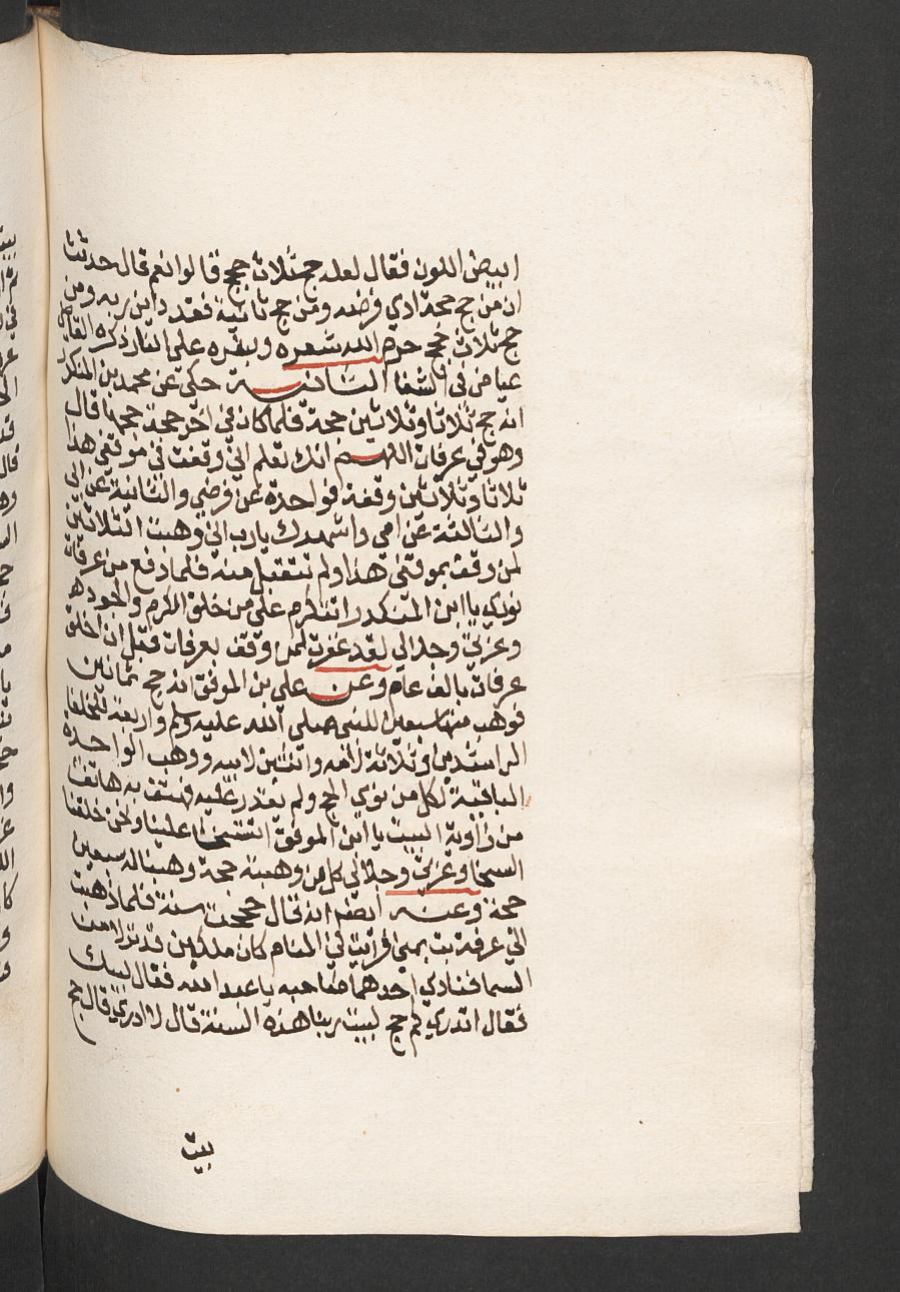 ابيض اللون فقال لعله حج ثلاث حجج قالوا نعم قال حدثت
ان من حج حجة ادي فرضه ومن حج ثانية فقد داين ربه ومن
حج ثلاث حجج حرم الله شعره وبشره علي النار ذكره القاضي
عياض في الشفا الثانيـة حكي عن محمد بن المنكدر
انه حج ثلاثا وثلاثين حجة فلما كان في اخر حجة حجها قال
وهو في عرفات اللهـم انك تعلم اني وقفت في موقفي هذا
ثلاثا وثلاثين وقفة فواحدة عن فرضي والثانية عن ابي
والثالثة عن امي واشهدك يارب اني وهبت الثلاثين
لمن وقف بموقفي هذا ولم تتقبل منه فلما دفع من عرفات
نودي يا ابن المنكدر اتتكرم علي من خلق الكرم والجود
وعزتي وجلالي لقد غفرت لمن وقف بعرفات قبل ان اخلق
عرفات بالف عام وعـن علي بن الموفق انه حج ثمانين
فوهب منها سبعين للنبي صلي الله عليه وسلم واربعة للخلفا
الراشدين وثلاثة لامه واثنتين لابيه ووهب الواحدة
الباقية لكل من نوي الحج ولم يقدر عليه فهتف به هاتف
من زاوية البيت يا ابن الموفق اتتسخا علينا ونحن خلقنا
السخا وعزتي وجلالي كل من وهبته حجة وهبنا له سبعين
حجة وعنـه ايضا انه قال حججت سنة فلما ذهبت
الي عرفة بت بمني فرايت في المنام كان ملكين قد نزلا من
السما فنادي احدهما صاحبه يا عبد الله فقال لبيك
فقال اتدري كم حج لبيت ربنا هذه السنة قال لا ادري قال حج
بيت